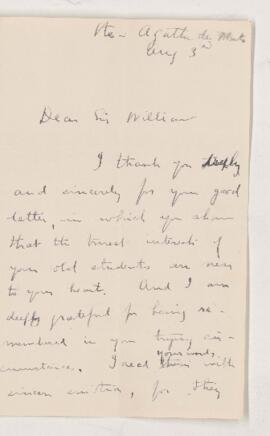 Ste Agathe des Monts
Aug 3rd
Dear Sir William
I thank you deeply
and sincerely for your good
letter, in which you show
that the truest interests of
your old students are near
to your heart. And I am
deeply grateful for being re-
membered in your trying cir-
cumstance. I read your words with
sincere emotion, for they